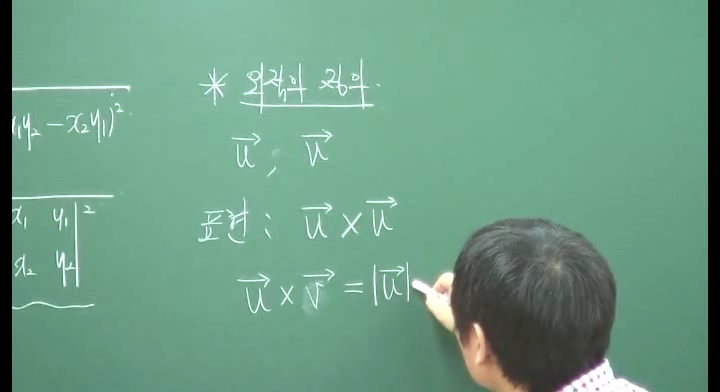 x₁y₂ - x₂y₁)²
x₁ y₁ |²
x₂ y₂ |
* 외적의 정의
u⃗, u⃗
표기 : u⃗ × u⃗
u⃗ × v⃗ = |u⃗|